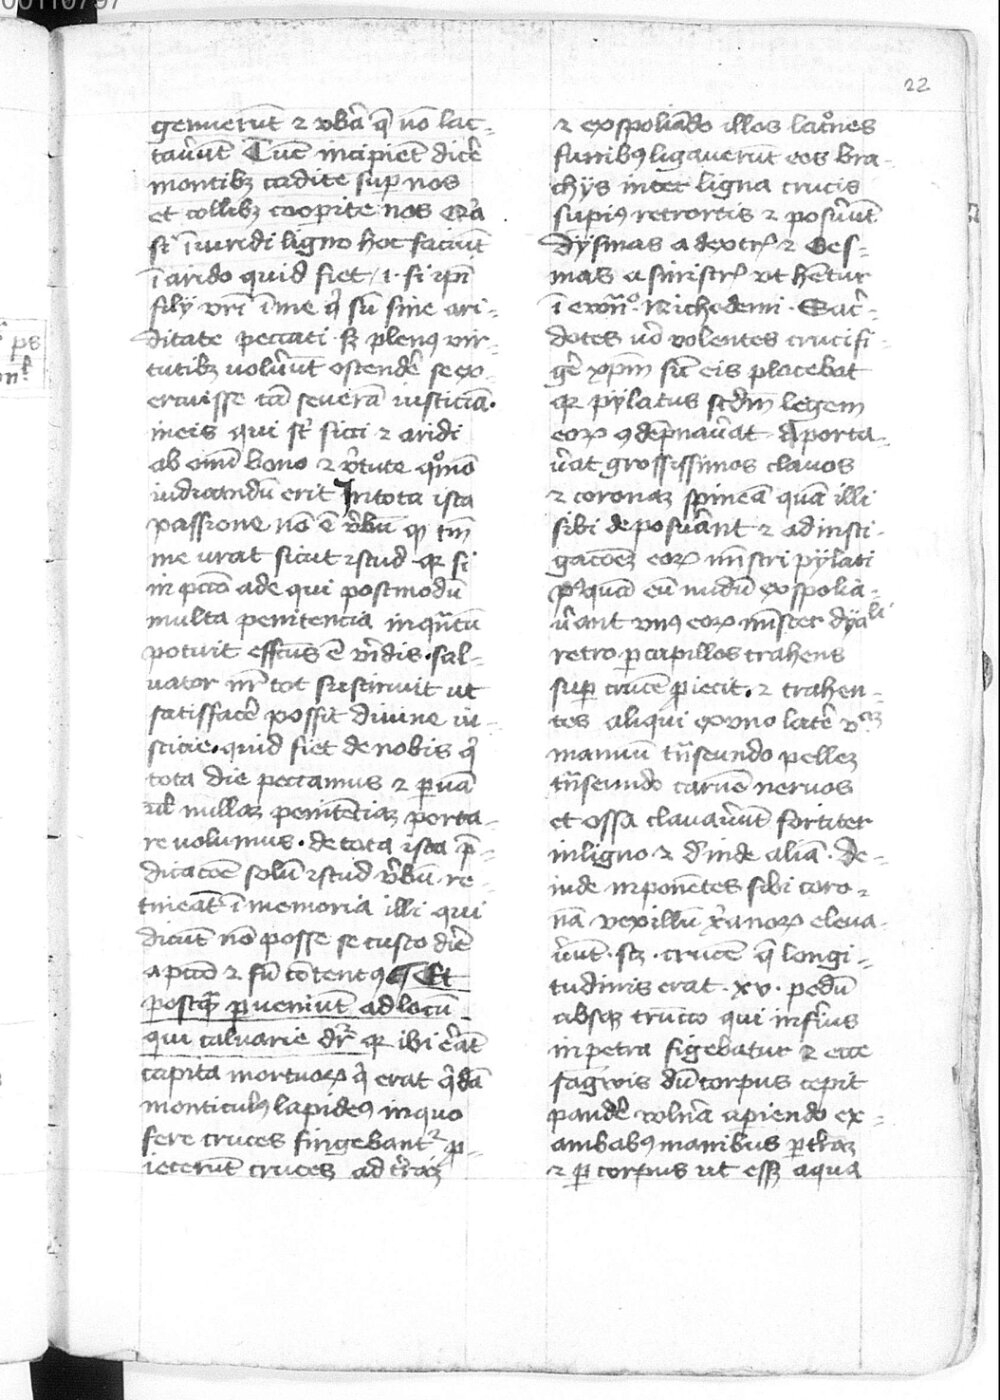 22
genuerūt ⁊ vbēa q̄ nō lac-
tauēūt Tūc incipiēt dicē
montibꝫ cadite suꝑ nos
et collibꝫ cooperite nos Qꝛa
si ī viridi ligno hoc faciūt
ī arido quid fiet .i. si ipī
filÿ vrī ī me qi sū sine ari-
ditate peccati . sꝫ plenꝰ vir-
tutibꝫ voluēūt ostendē se ex-
ercuisse tā seuerā iusticiā.
in eis qui st̄ sicci ⁊ aridi
ab omī bono ⁊ v̄tute qͦmō
iudicandū erit In tota ista
passione nō ē v̄bū qꝫ tm̄
me vrat sicut istud qꝛ si
in pctō ade qui postmodū
multa penitencia inqͣntū
potuit effectus ē viridis . sal-
uator nr̄ tot sustinuit ut
satisfacē possit diuine iu-
sticie . quid fiet de nobis qi
tota die peccamus ⁊ ꝑuā
vꝉ nullaꝫ penitēciaꝫ porta-
re volumus . de tota ista p̄-
dicacōē solū istud v̄bū re-
tineāt ī memoria illi qui
dicūt nō posse se custodiē
a pctō ⁊ sū cōtentꝰ ¶ Et
postqͣ ꝑueniūt ad locū
qui caluarie dr̄ qꝛ ibi ērāt
capita mortuoꝝ qi erat qͥdā
monticulꝰ lapideꝰ in quo
fere cruces fingebantꝛ ꝓ-
iecerūt cruces ad tr̄aꝫ
⁊ exspoliādo illos latrōnes
funibꝰ ligauerūt eos bra-
chÿs inter ligna crucis
supiꝰ retrortis ⁊ posuēūt
dÿsmas a dextrꝭ ⁊ Ges-
mas a sinistrꝭ vt hētur
ī ewāͦ . Nichodemi . Sacē-
dotes vō volentes crucifi-
gē xpm̄ sic̄ eis placebat
qꝛ pÿlatus scdm̄ legem
eoꝝ ꝯdēpnauēat Aporta-
uēat grossissimos clauos
⁊ coronaꝫ spineā quā illi
sibi deposuēant ⁊ ad insti-
gacōeꝫ eoꝝ mīstri pÿlati
pꝰquā eū nudū exspolia-
uēant vnꝰ eoꝝ mīster dÿali
retro ꝑ capillos trahens
suꝑ crucē ꝓiecit . ⁊ trahen-
tes aliqui ex vno latē
manum trn̄seundo pelleꝫ
trn̄seundo carnē neruos
et ossa clauauēūt fortiter
in ligno ⁊ d̄inde aliā . de-
inde inponētes sibi coro-
nā vexillū xͬanoꝝ eleua-
uēūt . scꝫ . crucē q̄ longi-
tudinis erat . xv . pedū
absqꝫ trunco qui infrius
in petra figebatur ⁊ ecce
sagwis dū corpus cepit
pandē volnēa apiendo ex
ambabꝰ manibus ꝑ tr̄aꝫ
⁊ ꝑ corpus ut essꝫ aqua